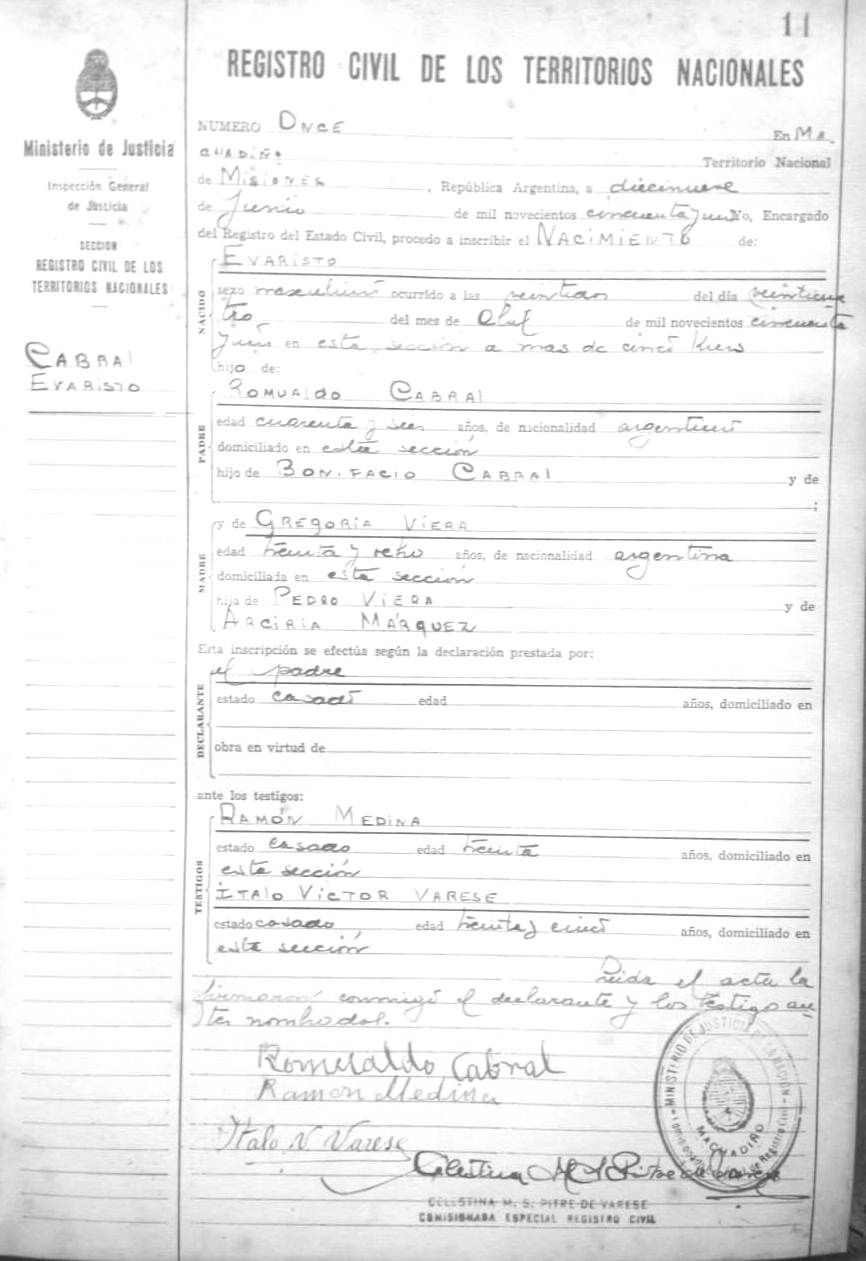 11
REGISTRO CIVIL DE LOS TERRITORIOS NACIONALES
Ministerio de Justicia
Inspección General
de Justicia
SECCION
REGISTRO CIVIL DE LOS
TERRITORIOS NACIONALES
CABRAL
EVARISTO
NUMERO ONCE En MA
CHADIÑO Territorio Nacional
de MISIONES, República Argentina, a diecinueve
de Junio de mil novecientos cincuenta y uno Yo, Encargado
del Registro del Estado Civil, procedo a inscribir el NACIMIENTO de:
NACIDO
EVARISTO
sexo masculino ocurrido a las veintidos del día veinticua
tro del mes de Abril de mil novecientos cincuenta
y uno en esta sección a mas de cinco
hijo de:
PADRE
ROMUALDO CABRAL
edad cuarenta y seis años, de nacionalidad argentino
domiciliado en esta sección
hijo de BONIFACIO CABRAL y de
;
MADRE
y de GREGORIA VIERA
edad treinta y ocho años, de nacionalidad argentina
domiciliada en esta sección
hija de PEDRO VIERA y de
ARCIRIA MÁRQUEZ
Esta inscripción se efectúa según la declaración prestada por:
DECLARANTE
el padre
estado casado edad años, domiciliado en
obra en virtud de
ante los testigos:
TESTIGOS
RAMÓN MEDINA
estado casado edad treinta años, domiciliado en
esta sección
ITALO VICTOR VARESE
estado casado edad treinta y cinco años, domiciliado en
esta sección
Leída el acta la
firmaron conmigo el declarante y los testigo an
tes nombrados.
Romualdo Cabral
Ramon Medina
Italo V Varese
Celestina M S Pitre de Varese
MINISTERIO DE JUSTICIA DE LA NACIÓN
MACHADIÑO
CELESTINA M. S. PITRE DE VARESE
COMISIONADA ESPECIAL REGISTRO CIVIL